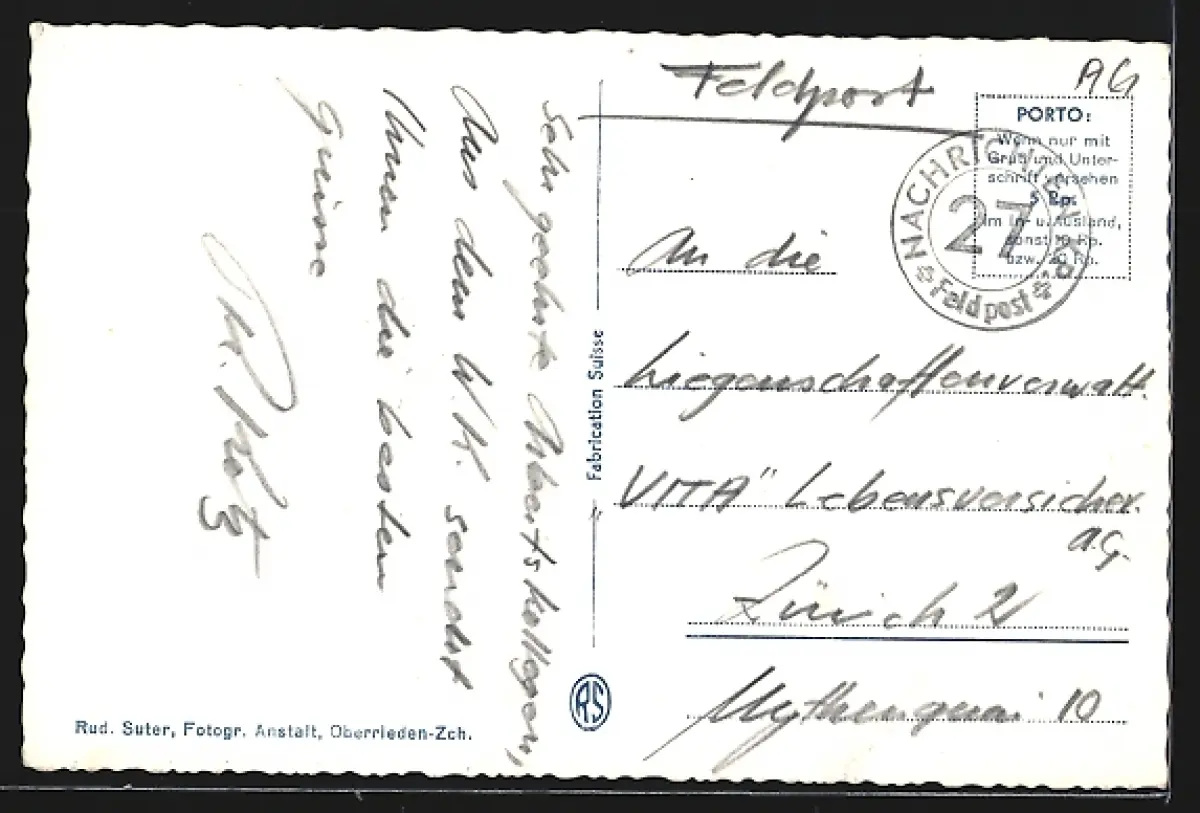 Sehr geehrte Arbeitskollegen,
Aus dem W.K. sendet
Ihnen die besten
Grüsse
Feldpost
AG
PORTO:
Wenn nur mit
Gruß und Unter-
schrift versehen
5 Rp.
im In- u. Ausland,
sonst 10 Rp.
bzw. 20 Rp.
NACHRICHTEN
27
Feldpost
An die
Liegenschaftenverwalt.
„VITA" Lebensversicher.
A.G.
Zürich 2
Mythenquai 10
Fabrication Suisse
RS
Rud. Suter, Fotogr. Anstalt, Oberrieden-Zch.